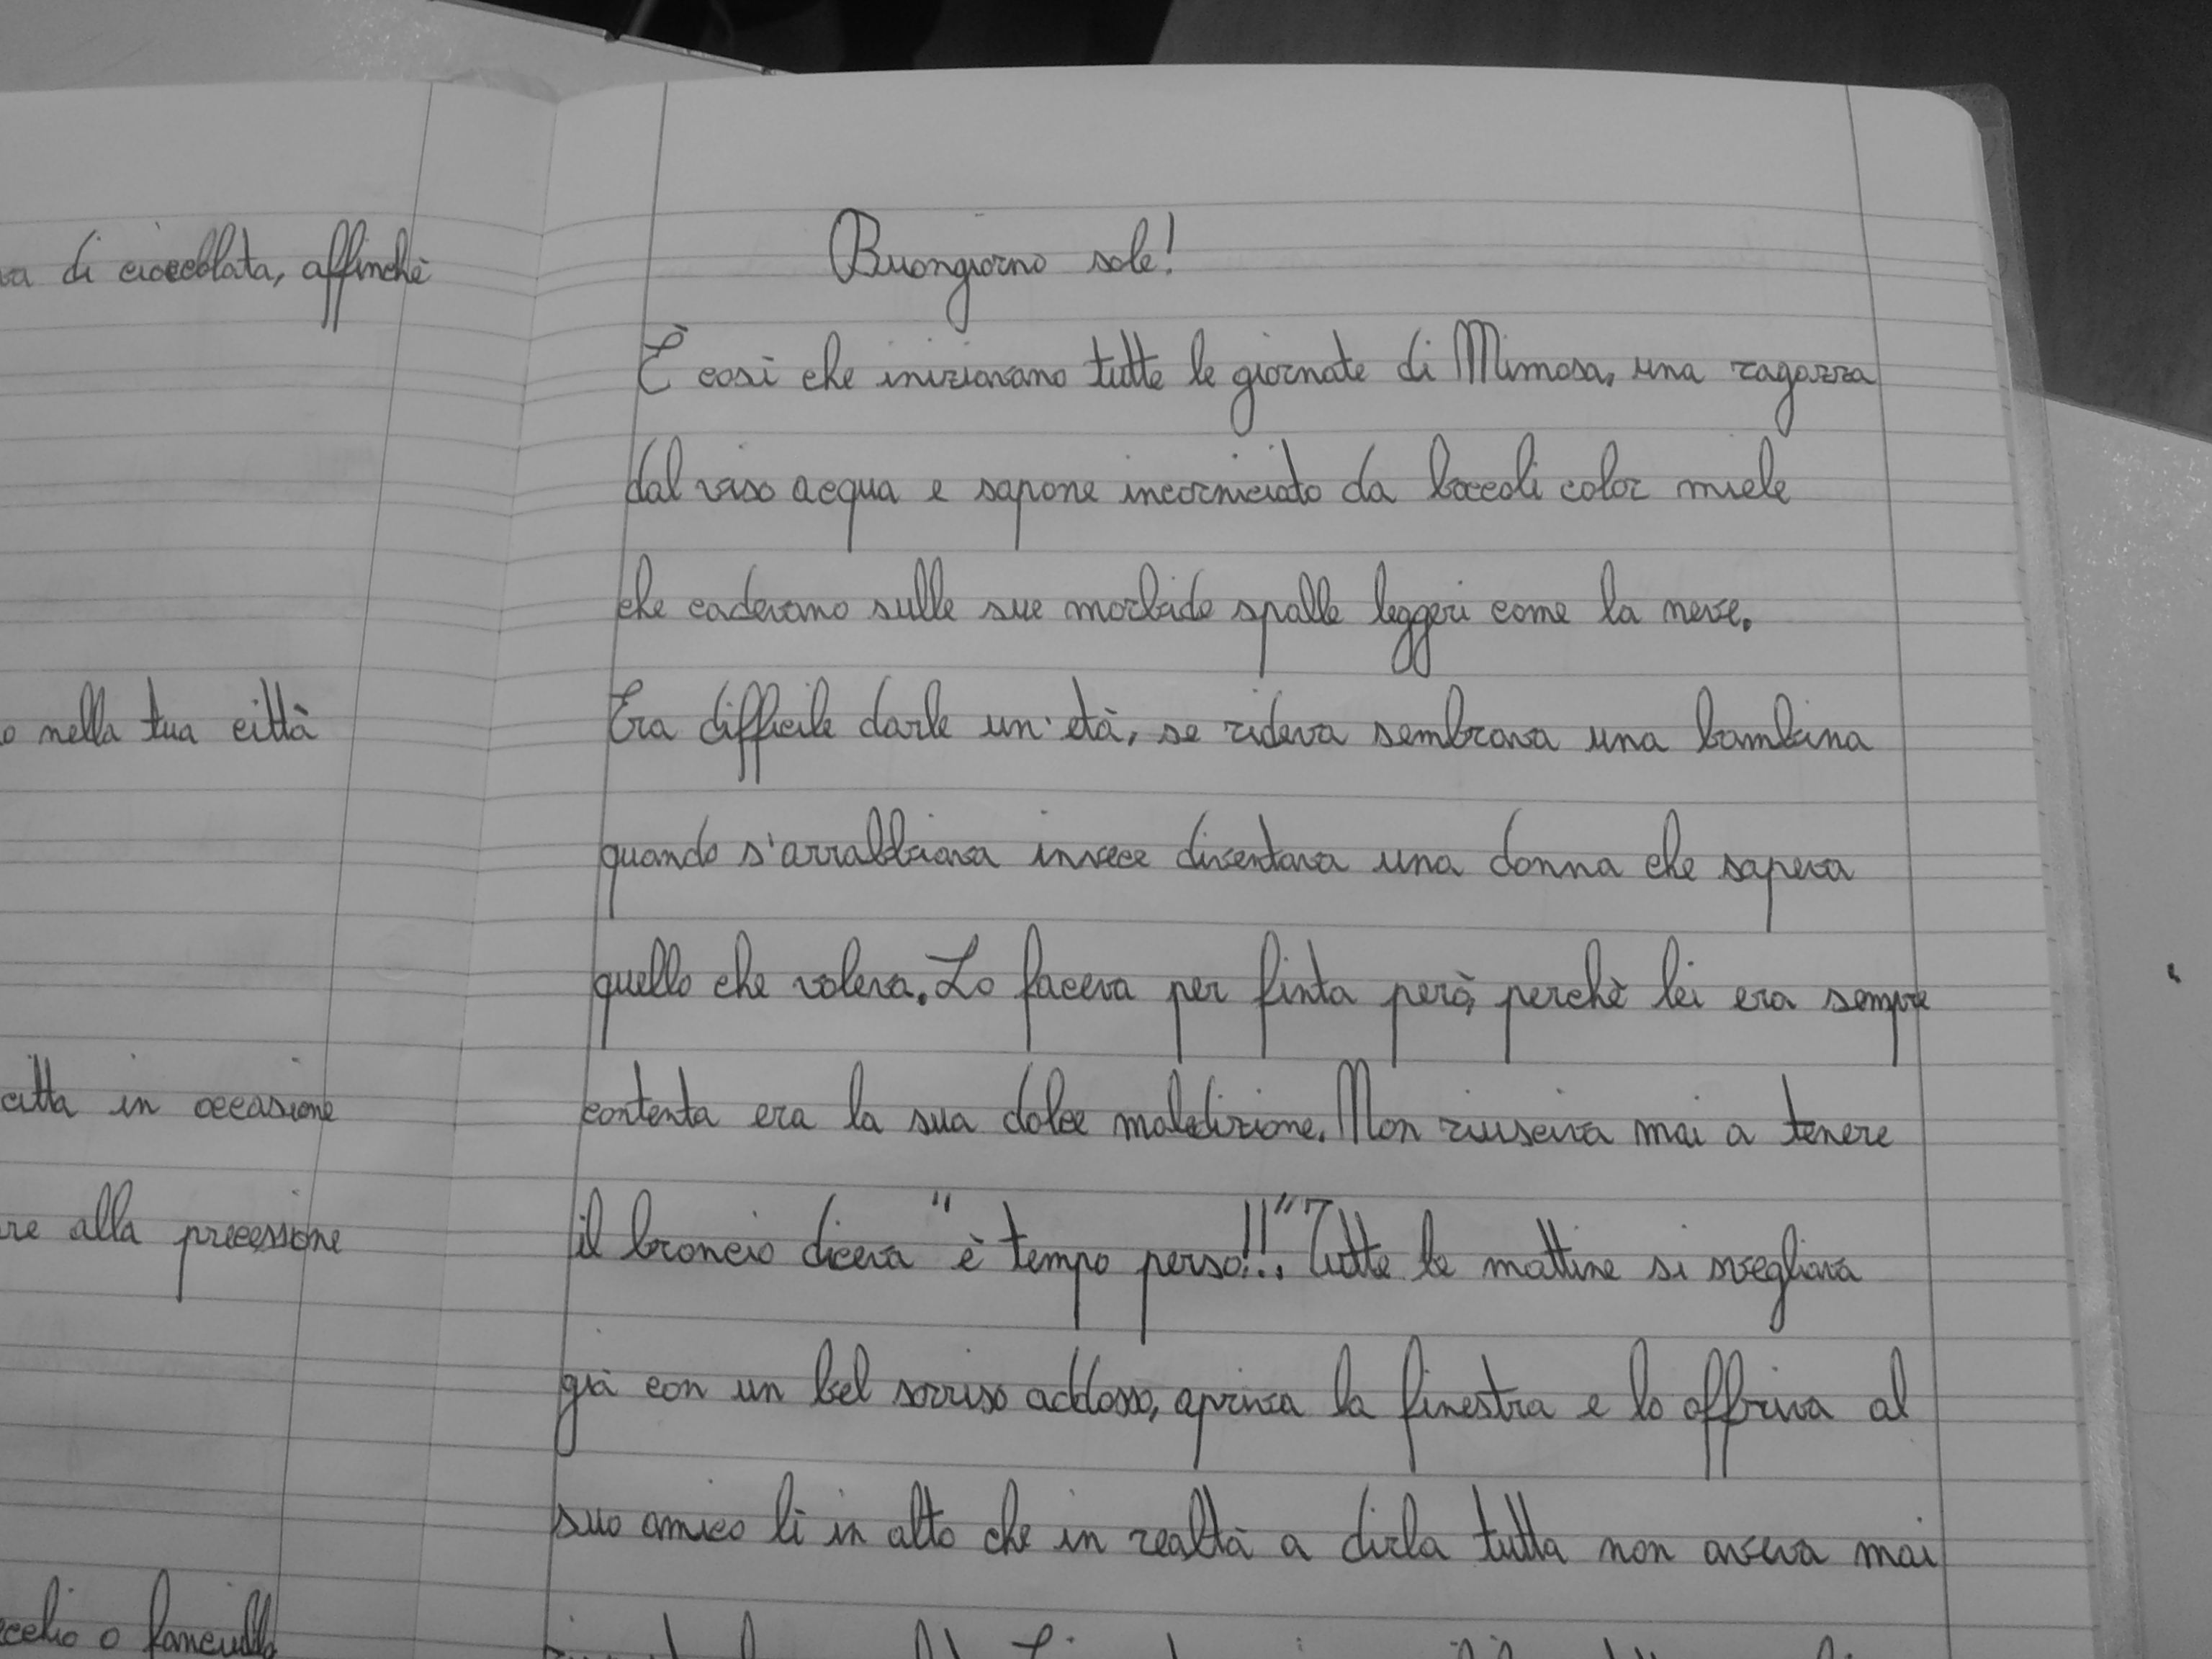 va di cioccolata, affinchè
o nella tua città
città in occasione
re alla processione
cchio o fanciullo
Buongiorno sole!
È così che iniziavano tutte le giornate di Mimosa, una ragazza
dal viso acqua e sapone incorniciato da boccoli color miele
che cadevano sulle sue morbide spalle leggeri come la neve.
Era difficile darle un'età, se rideva sembrava una bambina
quando s'arrabbiava invece diventava una donna che sapeva
quello che voleva. Lo faceva per finta però, perchè lei era sempre
contenta era la sua dolce maledizione. Non riusciva mai a tenere
il broncio diceva "è tempo perso!!". Tutte le mattine si svegliava
già con un bel sorriso addosso, apriva la finestra e lo offriva al
suo amico lì in alto che in realtà a dirla tutta non aveva mai